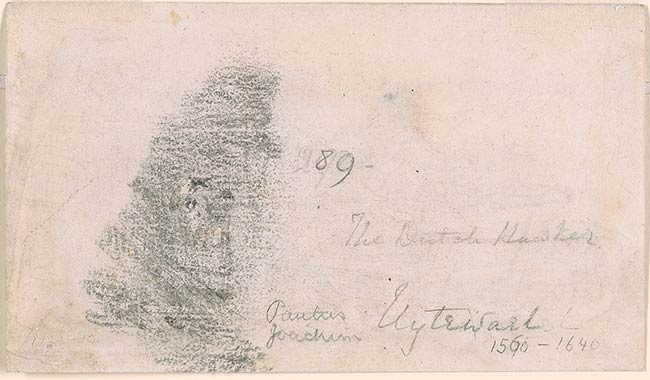 289 -
The Dutch Hawker
Joachim Uytewael
1560 - 1640